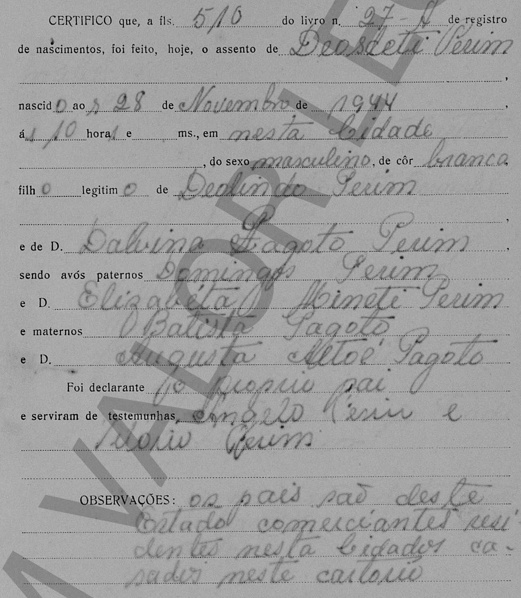 CERTIFICO que, a fls. 510 do livro n. 27-A de registro
de nascimentos, foi feito, hoje, o assento de Deosdeti Perim
,
nascido aos 28 de Novembro de 1944
ás 10 horas e ms., em nesta Cidade
, do sexo masculino, de côr branca
filho legitimo de Deolindo Perim
,
e de D. Dalvina Pagoto Perim ,
sendo avós paternos Domingos Perim
e D. Elizabéta Mineti Perim
e maternos Batista Pagoto
e D. Augusta Altoé Pagoto
Foi declarante o proprio pai
e serviram de testemunhas, Angelo Perim e
Perim
OBSERVAÇÕES: os pais são deste
Estado comerciantes resi
dentes nesta Cidade ca-
sados neste cartorio
M VALOR LEG